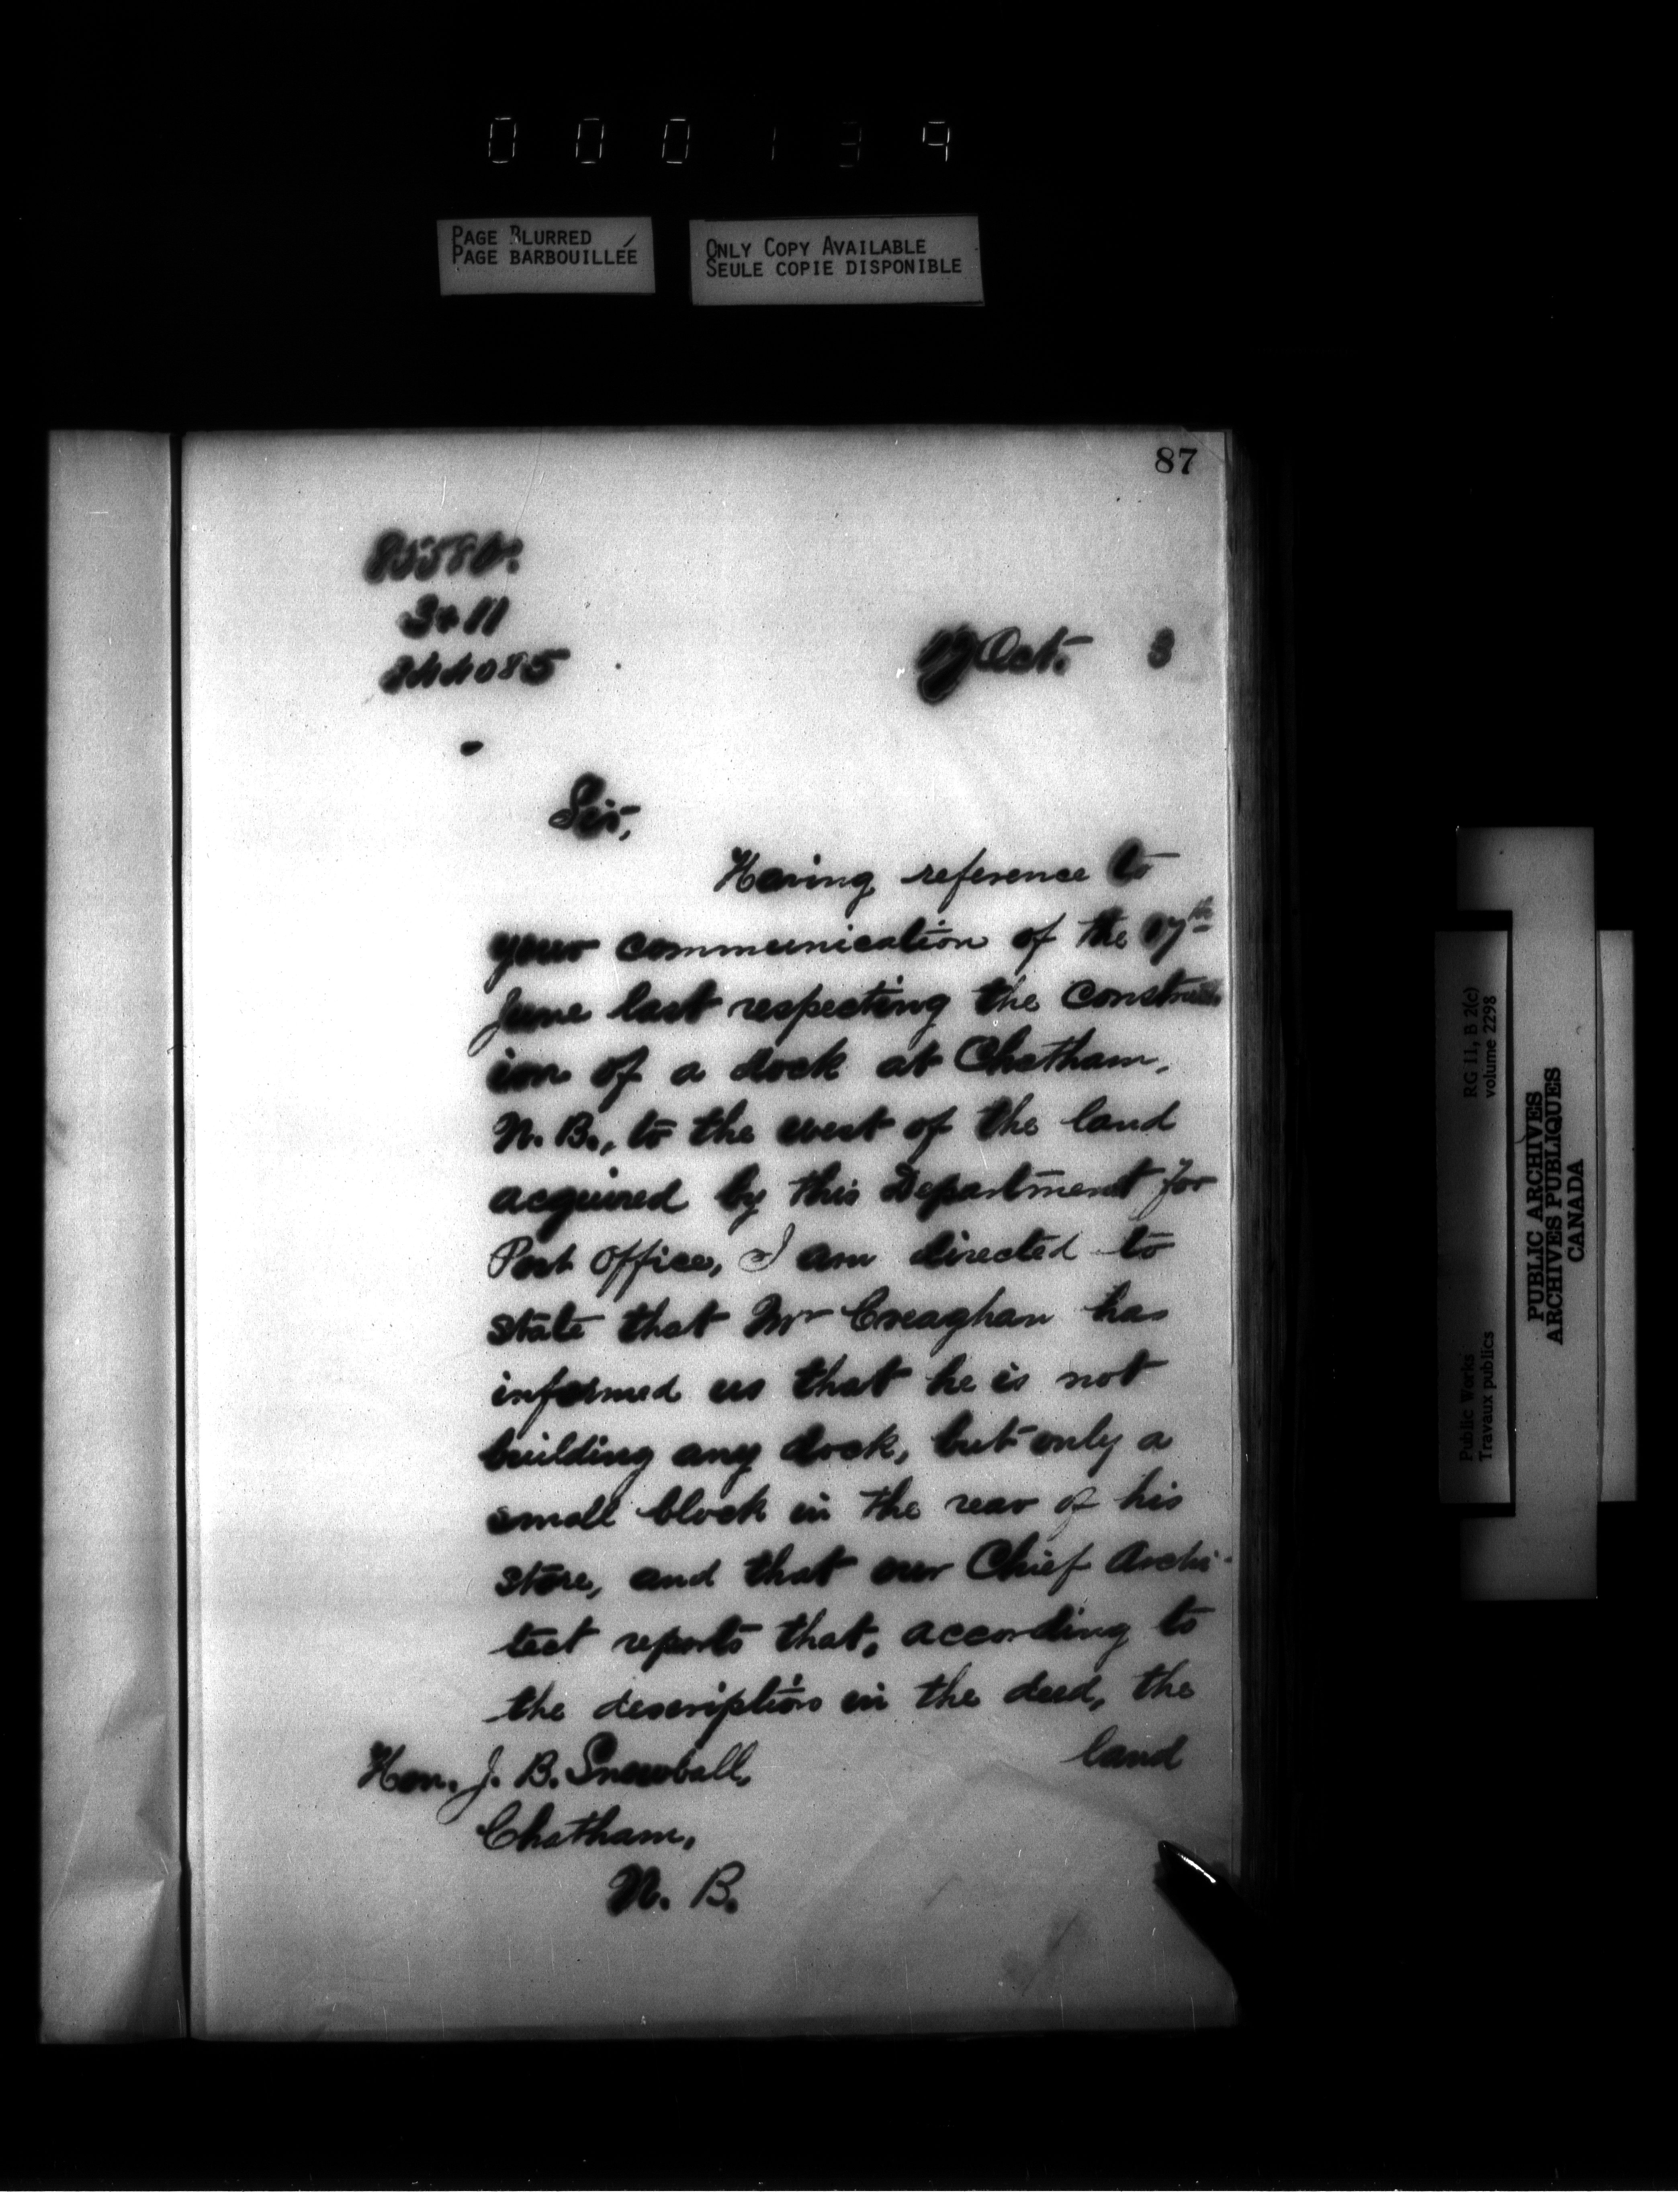 000139
PAGE BLURRED
PAGE BARBOUILLÉE
ONLY COPY AVAILABLE
SEULE COPIE DISPONIBLE
87
Oct. 3
Sir,
Having reference to
your communication of the 17th
June last respecting the Construct
ion of a dock at Chatham,
N. B., to the west of the land
acquired by this Department for
Post Office, I am directed to
state that Mr Creaghan has
informed us that he is not
building any dock, but only a
small block in the rear of his
store, and that our Chief Archi-
tect reports that, according to
the description in the deed, the
land
Hon. J. B. Snowball,
Chatham,
N. B.
Public Works
Travaux publics
RG 11, B 2(c)
volume 2298
PUBLIC ARCHIVES
ARCHIVES PUBLIQUES
CANADA